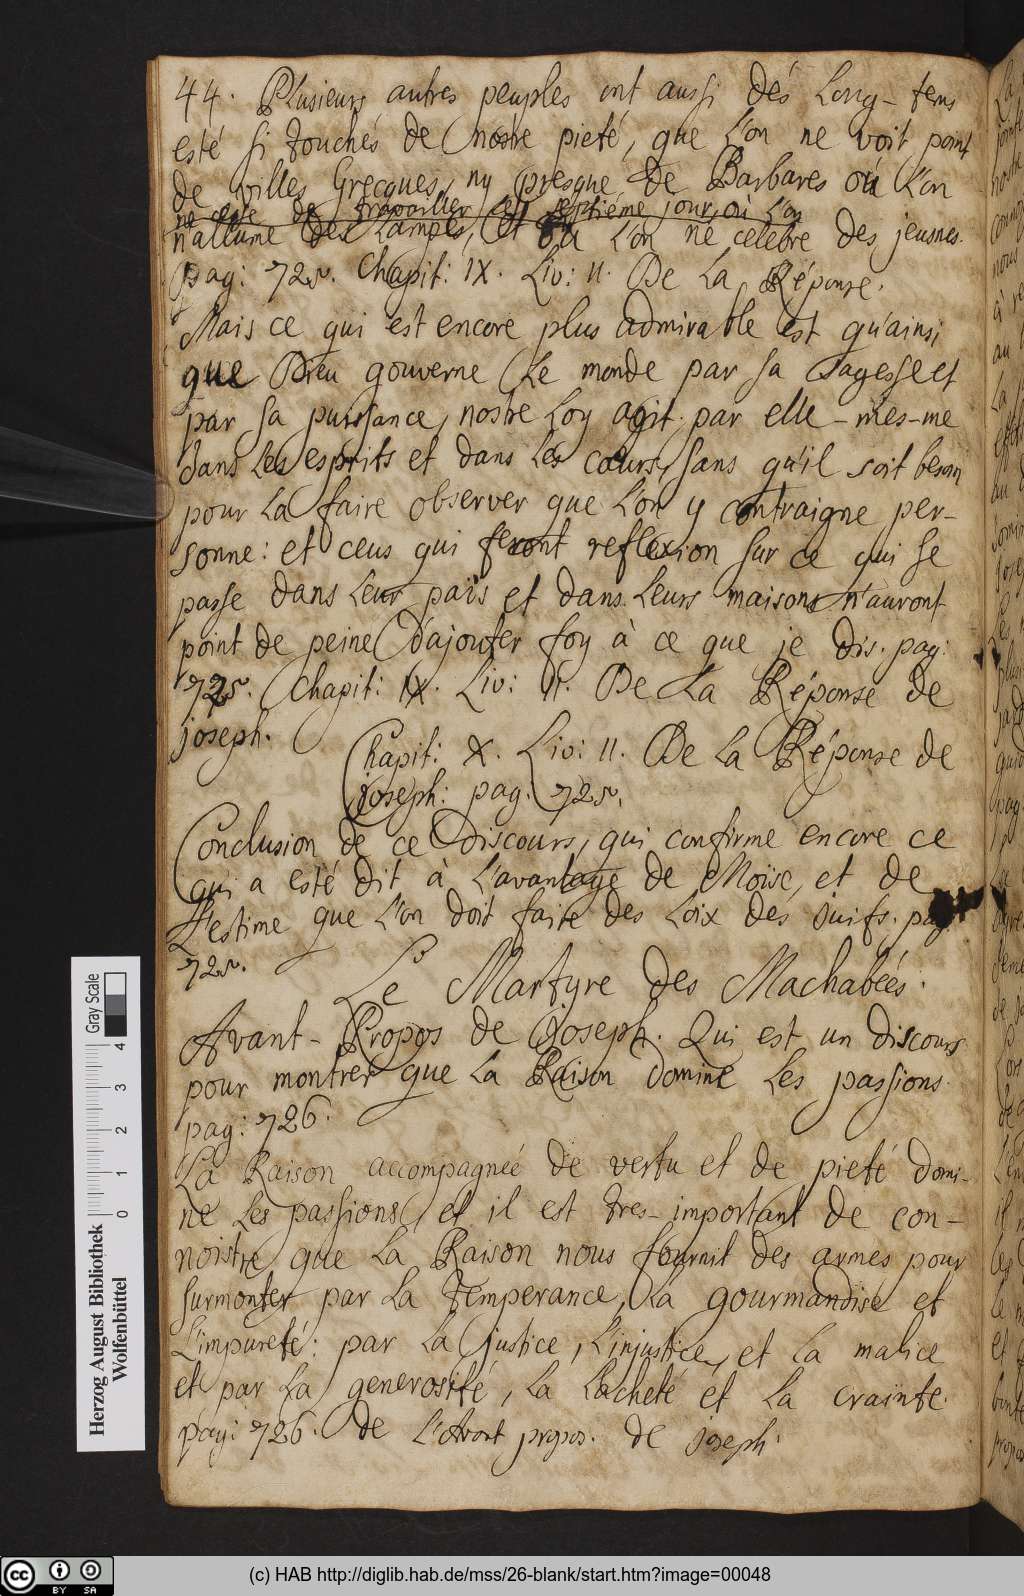 44. Plusieurs autres peuples ont aussi dés Long-tems
esté si touchés de nostre pieté, que L'on ne voit point
de villes Grecques, ny presque de Barbares où L'on
ne cesse de travailler le septiéme jour, où L'on
n'allume des Lampes, et où L'on ne celebre des jeusnes.
pag: 725. Chapit: IX. Liv: II. De La Réponse.
Mais ce qui est encore plus admirable est qu'ainsi
que Dieu gouverne Le monde par sa Sagesse et
par sa puissance, nostre Loy agit par elle-mes-me
dans Les esprits et dans Les cœurs, sans qu'il soit besoin
pour La faire observer que L'on y contraigne per-
sonne: et ceus qui feront reflexion sur ce qui se
passe dans Leur païs et dans Leurs maisons n'auront
point de peine d'ajouter foy à ce que je dis. pag:
725. Chapit: IX. Liv: II. De La Réponse de
joseph.
Chapit: X. Liv: II. De La Réponse de
joseph: pag. 725.
Conclusion de ce Discours, qui confirme encore ce
qui a esté dit à L'avantage de Moïse, et de
L'estime que L'on doit faire des Loix des juifs. pag
725.
Le Martyre des Machabées.
Avant-Propos de Joseph. Qui est un discours
pour montrer que La Raison domine Les passions.
pag: 726.
La Raison accompagneé de vertu et de pieté domi-
ne Les passions, et il est tres-important de con-
noistre que La Raison nous fournit des armes pour
surmonter par La Temperance, La gourmandise et
L'impureté: par La justice, L'injustice, et La malice
et par La generosité, La Lacheté et La crainte.
pag: 726. de L'Avant propos. de joseph.
Herzog August Bibliothek
Wolfenbüttel
0 1 2 3 4
Gray Scale
cc BY SA
(c) HAB http://diglib.hab.de/mss/26-blank/start.htm?image=00048